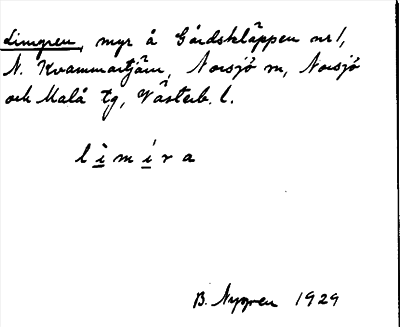 Limyren, myr å Gårdskläppen nr 1,
N. Kvammartjärn, Norsjö sn, Norsjö
och Malå tg, Västerb. l.
l ì m í r a
B. Nygren 1929